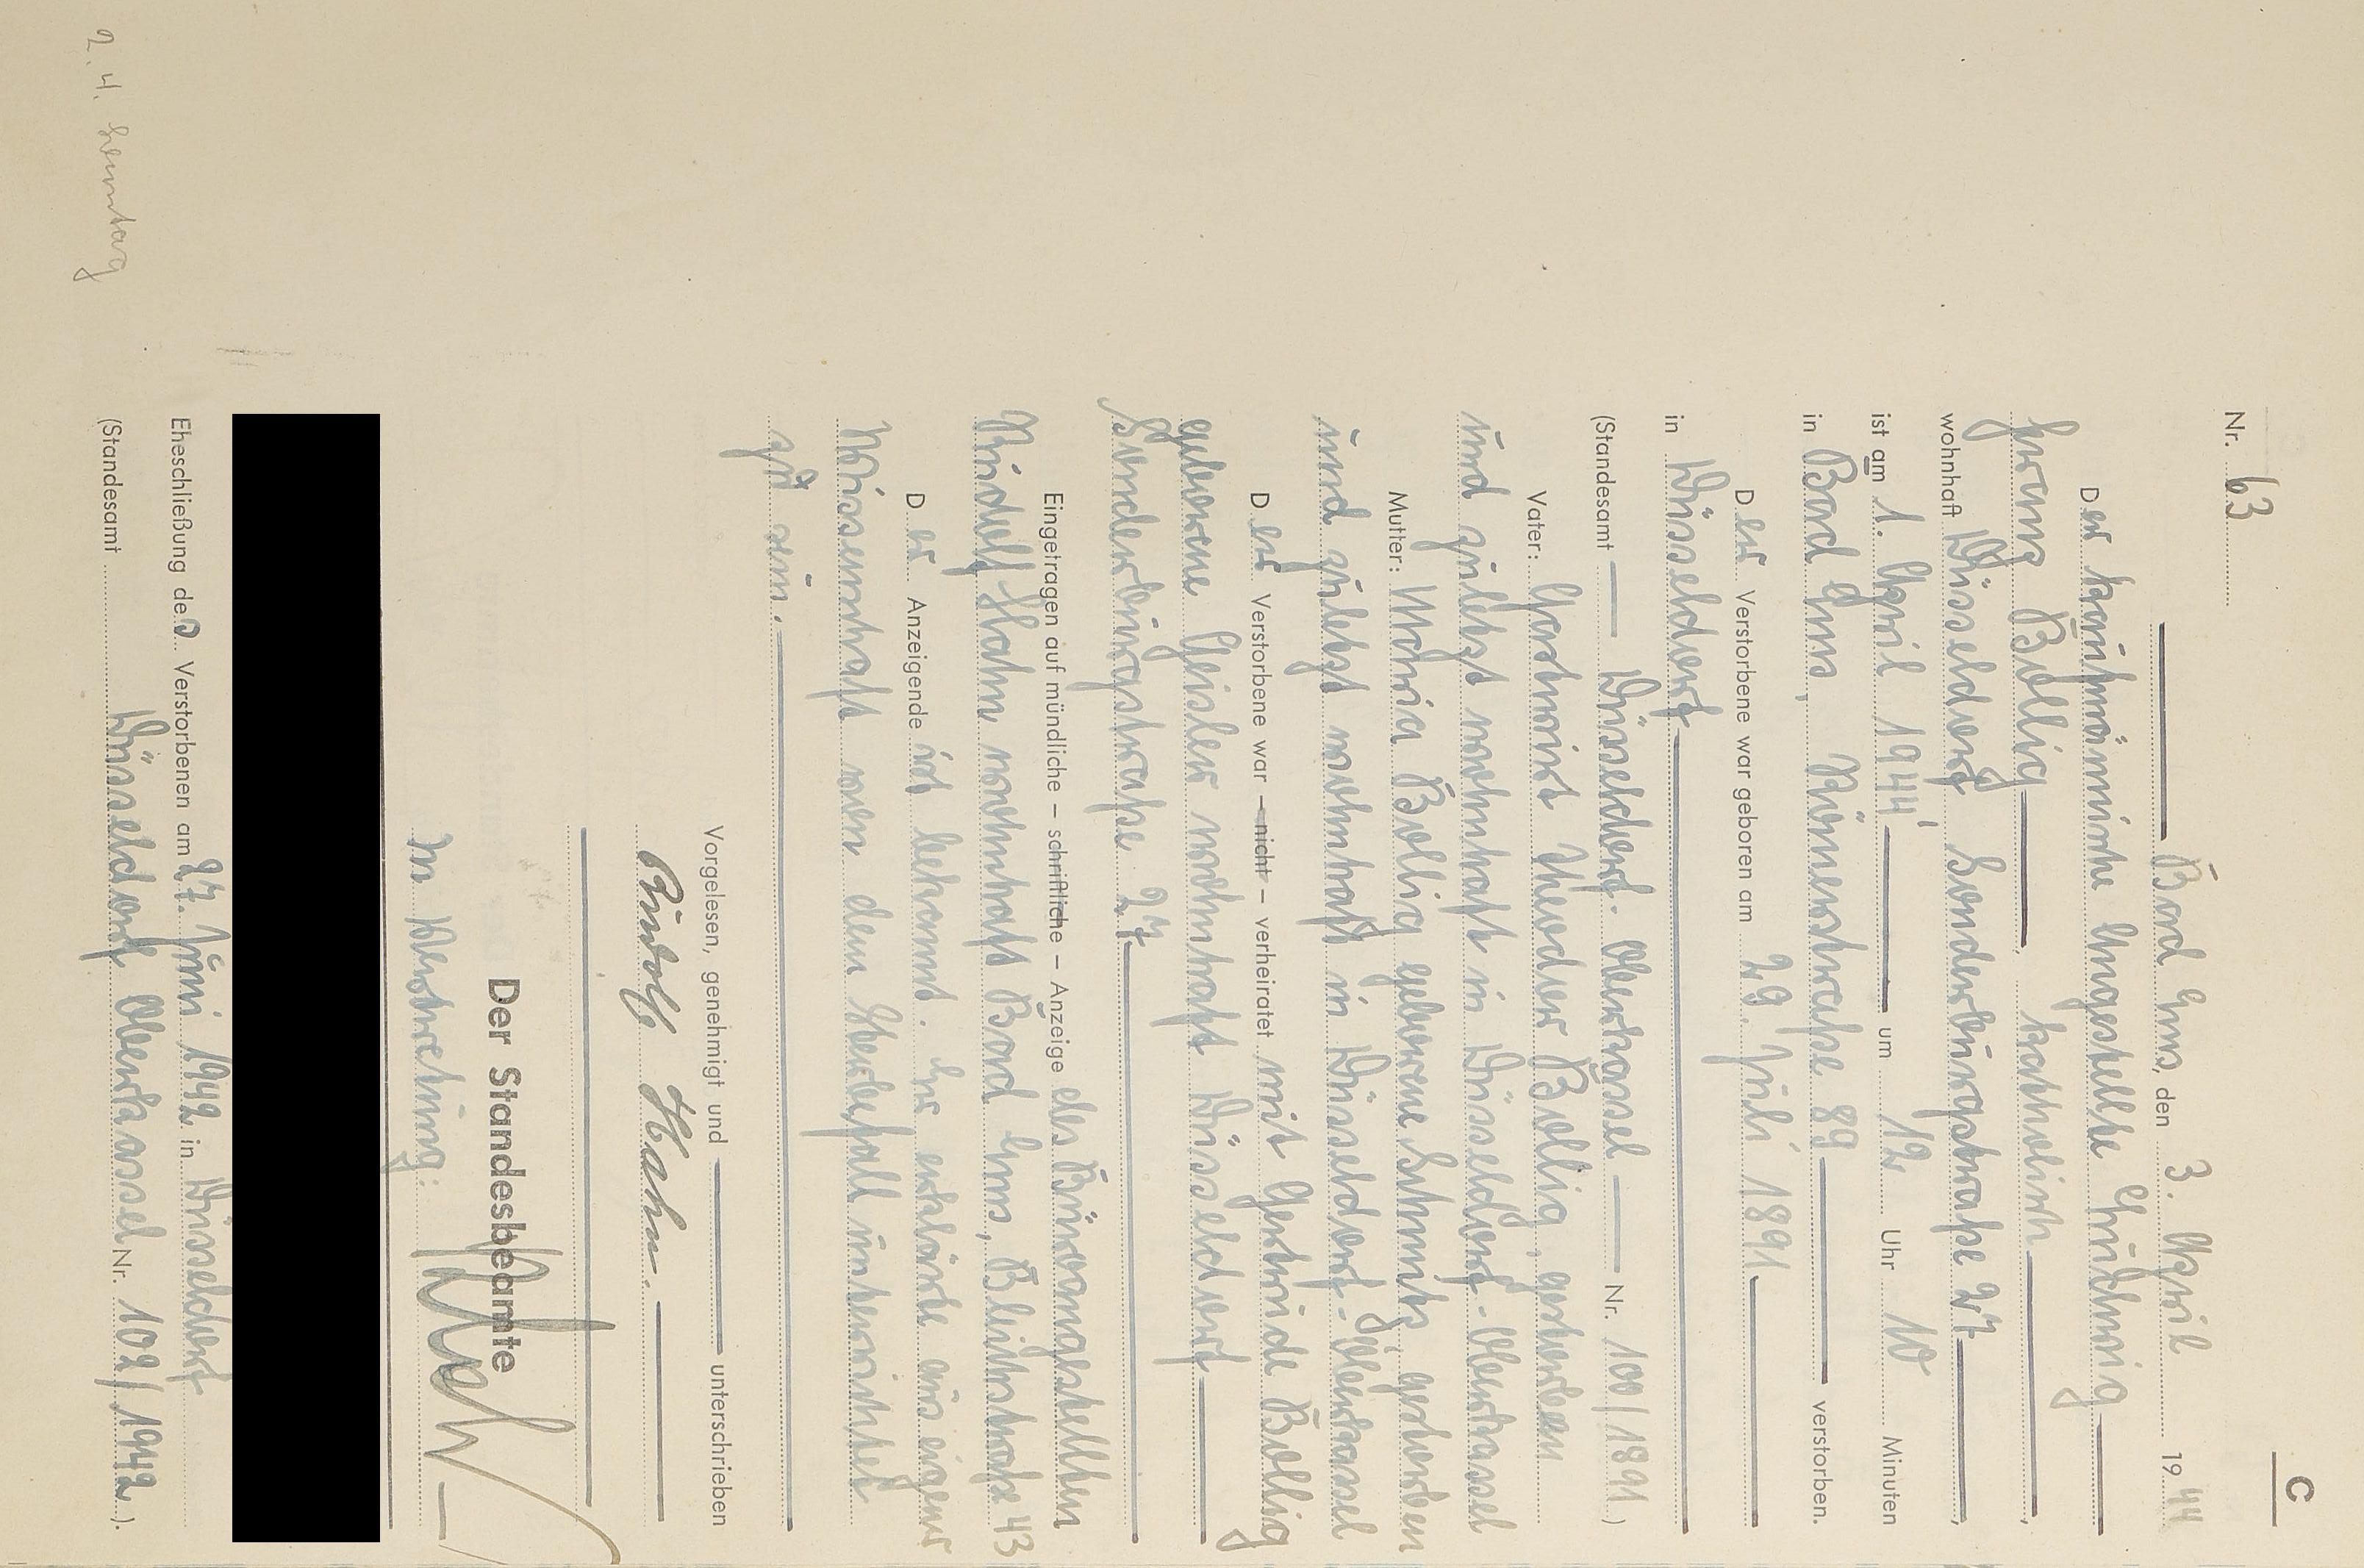 C
Nr. 63
Bad Ems, den 3. April 1944
Der kaufmännische Angestellte Ludwig
Franz Bollig, katholisch,
wohnhaft Düsseldorf Sonderburgstraße 27,
ist am 1. April 1944 um 12 Uhr 10 Minuten
in Bad Ems, Römerstraße 89 verstorben.
Der Verstorbene war geboren am 29. Juli 1891
in Düsseldorf
(Standesamt Düsseldorf-Oberkassel Nr. 100/1891)
Vater: Gastwirt Theodor Bollig, gestorben
und zuletzt wohnhaft in Düsseldorf-Oberkassel
Mutter: Maria Bollig geborene Schmitz, gestorben
und zuletzt wohnhaft in Düsseldorf-Oberkassel
Der Verstorbene war – nicht – verheiratet mit Gertrude Bollig
geborene Geisler wohnhaft Düsseldorf
Sonderburgstraße 27
Eingetragen auf mündliche – schriftliche – Anzeige des Büroangestellten
Rudolf Hahn wohnhaft Bad Ems, Bleichstraße 43
Der Anzeigende ist bekannt. Er erklärte aus eigener
Wissenschaft von dem Sterbefall unterrichtet
zu sein.
Vorgelesen, genehmigt und unterschrieben
Rudolf Hahn.
Der Standesbeamte
In Vertretung:
Eheschließung des Verstorbenen am 27. Juni 1942 in Düsseldorf
(Standesamt Düsseldorf Oberkassel Nr. 102/1942).
2. 4. Sonntag